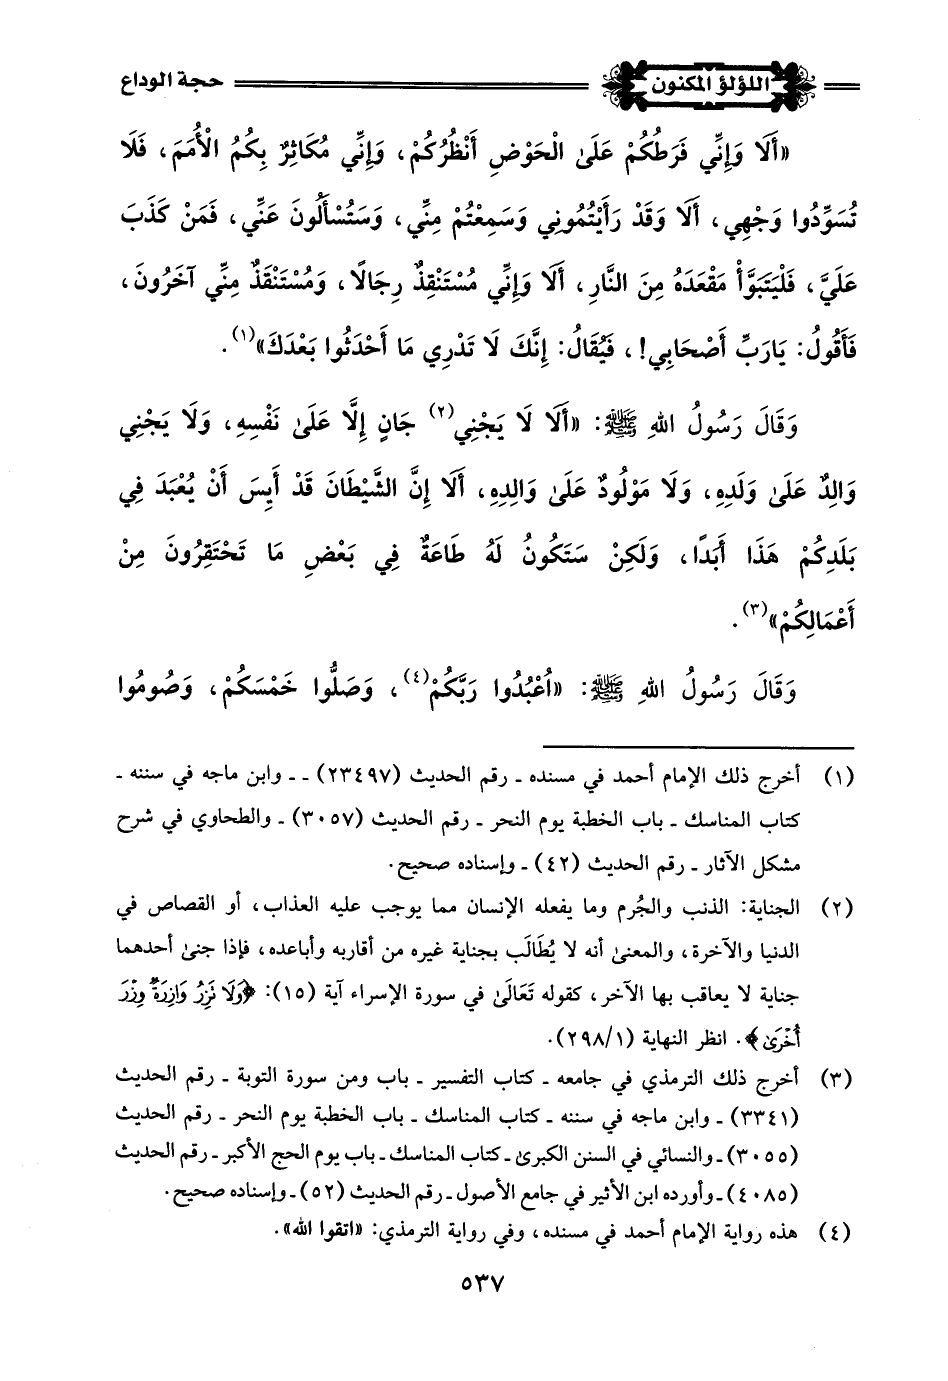 اللؤلؤ المكنون
حجة الوداع
«أَلَا وَإِنِّي فَرَطُكُمْ عَلَىٰ الْحَوْضِ أَنْظُرُكُمْ، وَإِنِّي مُكَاثِرٌ بِكُمُ الْأُمَمَ، فَلَا
تُسَوِّدُوا وَجْهِي، أَلَا وَقَدْ رَأَيْتُمُونِي وَسَمِعْتُمْ مِنِّي، وَسَتُسْأَلُونَ عَنِّي، فَمَنْ كَذَبَ
عَلَيَّ، فَلْيَتَبَوَّأْ مَقْعَدَهُ مِنَ النَّارِ، أَلَا وَإِنِّي مُسْتَنْقِذٌ رِجَالًا، وَمُسْتَنْقَذٌ مِنِّي آخَرُونَ،
فَأَقُولُ: يَارَبِّ أَصْحَابِي!، فَيُقَالُ: إِنَّكَ لَا تَدْرِي مَا أَحْدَثُوا بَعْدَكَ»(١).
وَقَالَ رَسُولُ اللهِ ﷺ: «أَلَا لَا يَجْنِي(٢) جَانٍ إِلَّا عَلَىٰ نَفْسِهِ، وَلَا يَجْنِي
وَالِدٌ عَلَىٰ وَلَدِهِ، وَلَا مَوْلُودٌ عَلَىٰ وَالِدِهِ، أَلَا إِنَّ الشَّيْطَانَ قَدْ أَيِسَ أَنْ يُعْبَدَ فِي
بَلَدِكُمْ هَذَا أَبَدًا، وَلَكِنْ سَتَكُونُ لَهُ طَاعَةٌ فِي بَعْضِ مَا تَحْتَقِرُونَ مِنْ
أَعْمَالِكُمْ»(٣).
وَقَالَ رَسُولُ اللهِ ﷺ: «اُعْبُدُوا رَبَّكُمْ(٤)، وَصَلُّوا خَمْسَكُمْ، وَصُومُوا
(١) أخرج ذلك الإمام أحمد في مسنده ـ رقم الحديث (٢٣٤٩٧) ـ ـ وابن ماجه في سننه ـ
كتاب المناسك ـ باب الخطبة يوم النحر ـ رقم الحديث (٣٠٥٧) ـ والطحاوي في شرح
مشكل الآثار ـ رقم الحديث (٤٢) ـ وإسناده صحيح.
(٢) الجناية: الذنب والجُرم وما يفعله الإنسان مما يوجب عليه العذاب، أو القصاص في
الدنيا والآخرة، والمعنىٰ أنه لا يُطَالَب بجناية غيره من أقاربه وأباعده، فإذا جنىٰ أحدهما
جناية لا يعاقب بها الآخر، كقوله تَعَالَىٰ في سورة الإسراء آية (١٥): ﴿وَلَا نَزِرُ وَازِرَةٌ وِزْرَ
أُخْرَىٰ﴾. انظر النهاية (٢٩٨/١).
(٣) أخرج ذلك الترمذي في جامعه ـ كتاب التفسير ـ باب ومن سورة التوبة ـ رقم الحديث
(٣٣٤١) ـ وابن ماجه في سننه ـ كتاب المناسك ـ باب الخطبة يوم النحر ـ رقم الحديث
(٣٠٥٥) ـ والنسائي في السنن الكبرىٰ ـ كتاب المناسك ـ باب يوم الحج الأكبر ـ رقم الحديث
(٤٠٨٥) ـ وأورده ابن الأثير في جامع الأصول ـ رقم الحديث (٥٢) ـ وإسناده صحيح.
(٤) هذه رواية الإمام أحمد في مسنده، وفي رواية الترمذي: «اتقوا الله».
٥٣٧